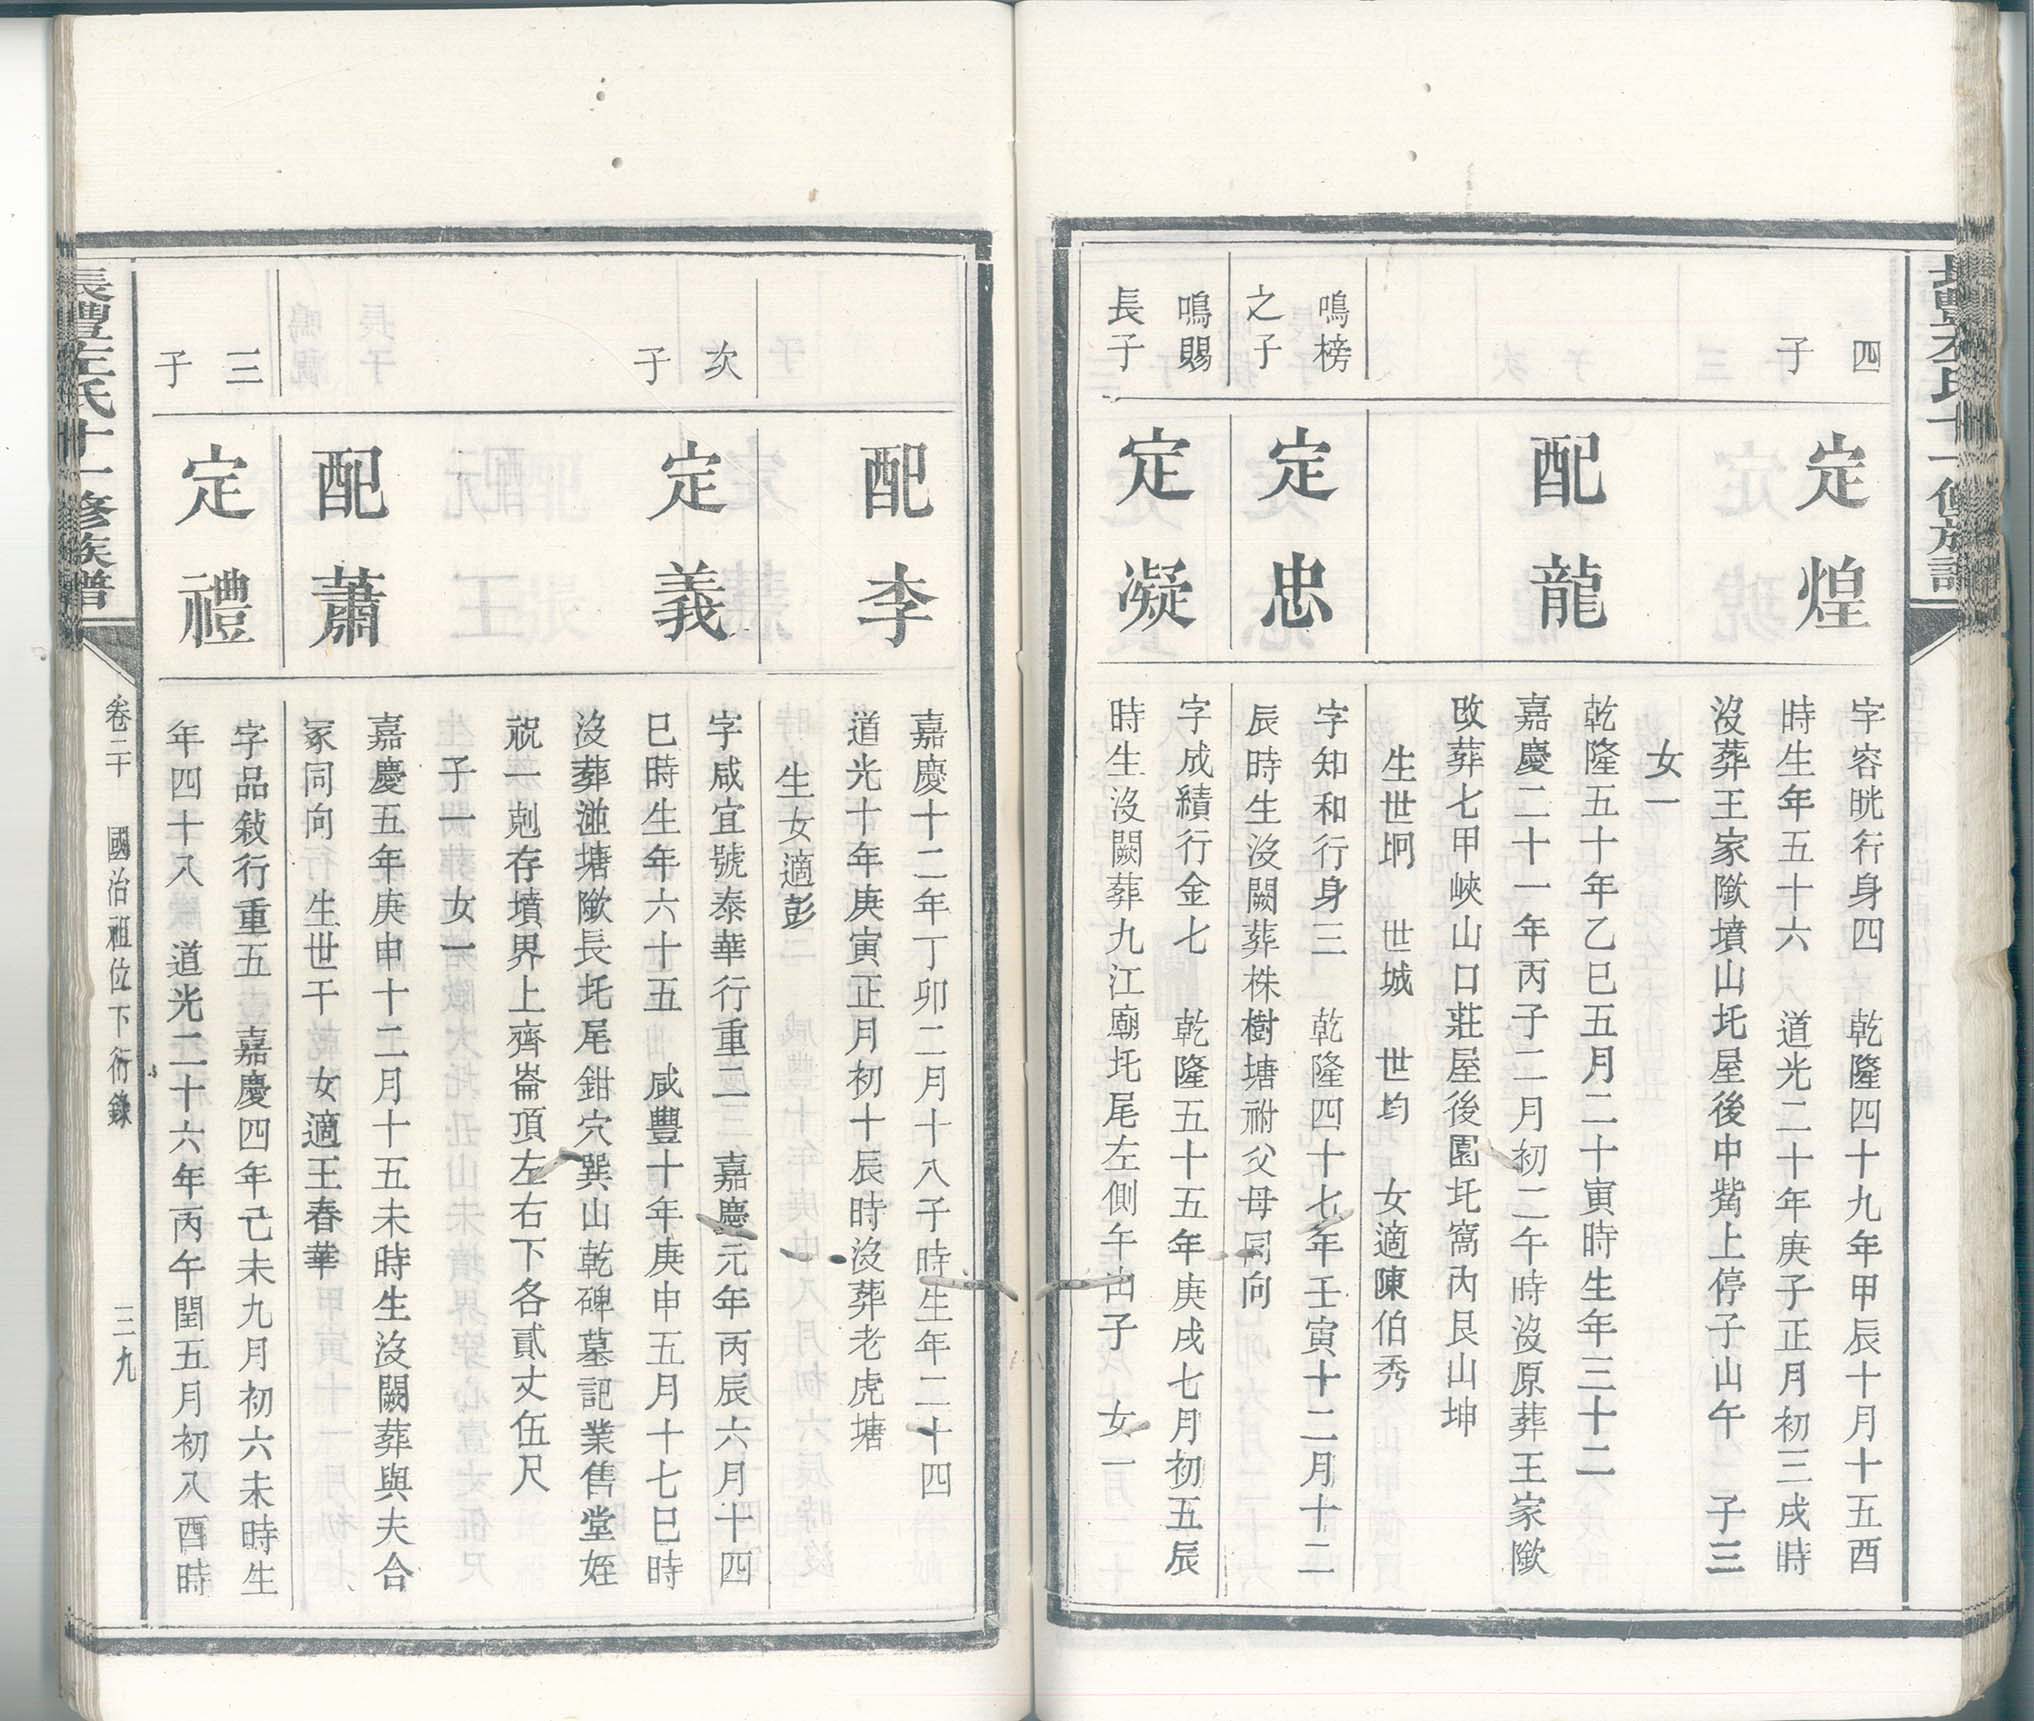 四
子
定煌
字容晄行身四　乾隆四十九年甲辰十月十五酉
時生年五十六　道光二十年庚子正月初三戌時
沒葬王家隞墳山圫屋後中觜上停子山午　子三
女一
配龍
乾隆五十年乙巳五月二十寅時生年三十二
嘉慶二十一年丙子二月初二午時沒原葬王家隞
改葬七甲峽山口莊屋後園圫窩內艮山坤
生世坰　世城　世均　女適陳伯秀
鳴榜
之子
定忠
字知和行身三　乾隆四十七年壬寅十二月十二
辰時生沒闕葬株樹塘祔父母同向
鳴賜
長子
定凝
字成績行金七　乾隆五十五年庚戌七月初五辰
時生沒闕葬九江廟圫尾左側午山子　女一
配李
嘉慶十二年丁卯二月十八子時生年二十四
道光十年庚寅正月初十辰時沒葬老虎塘
生女適彭
次
子
定義
字咸宜號泰華行重二　嘉慶元年丙辰六月十四
巳時生年六十五　咸豐十年庚申五月十七巳時
沒葬澁塘隞長圫尾鉗穴巽山乾碑墓記業售堂姪
祝一剋存墳界上齊崙頂左右下各貳丈伍尺
生子一　女一
配蕭
嘉慶五年庚申十二月十五未時生沒闕葬與夫合
冢同向　生世干　女適王春華
三
子
定禮
字品敍行重五　嘉慶四年己未九月初六未時生
年四十八　道光二十六年丙午閏五月初八酉時
長澧左氏十一修族譜
卷二十　國治祖位下衍錄　三九